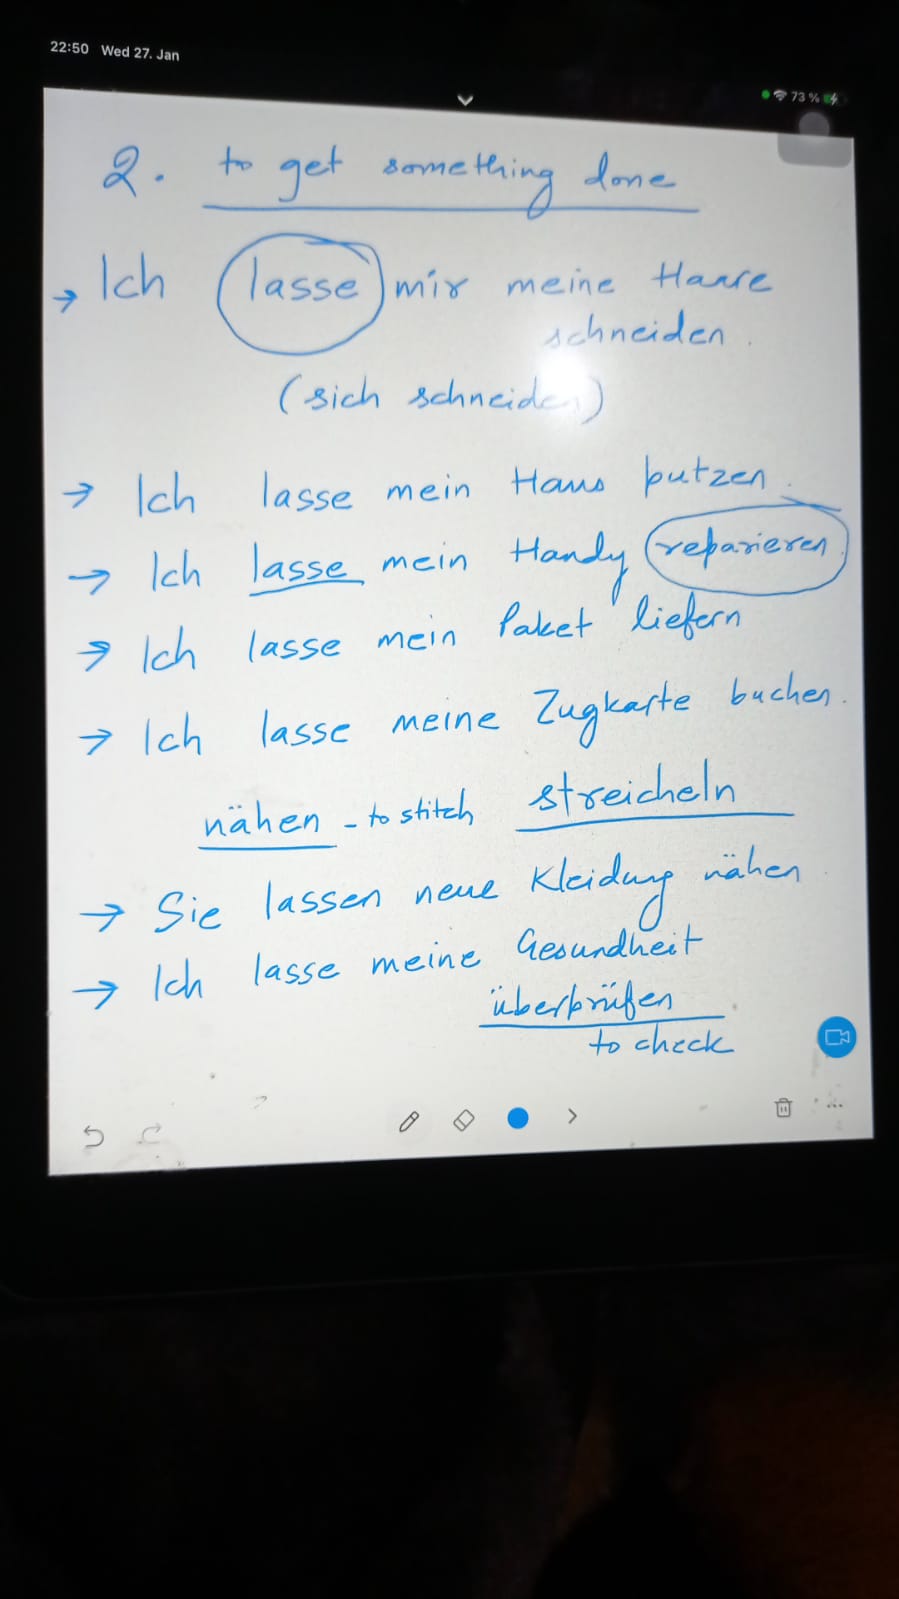 22:50 Wed 27. Jan
73 %
2. to get something done
→ Ich lasse mir meine Haare
schneiden.
(sich schneiden)
→ Ich lasse mein Haus putzen.
→ Ich lasse mein Handy reparieren.
→ Ich lasse mein Paket liefern
→ Ich lasse meine Zugkarte buchen.
nähen - to stitch streicheln
→ Sie lassen neue Kleidung nähen
→ Ich lasse meine Gesundheit
überprüfen
to check